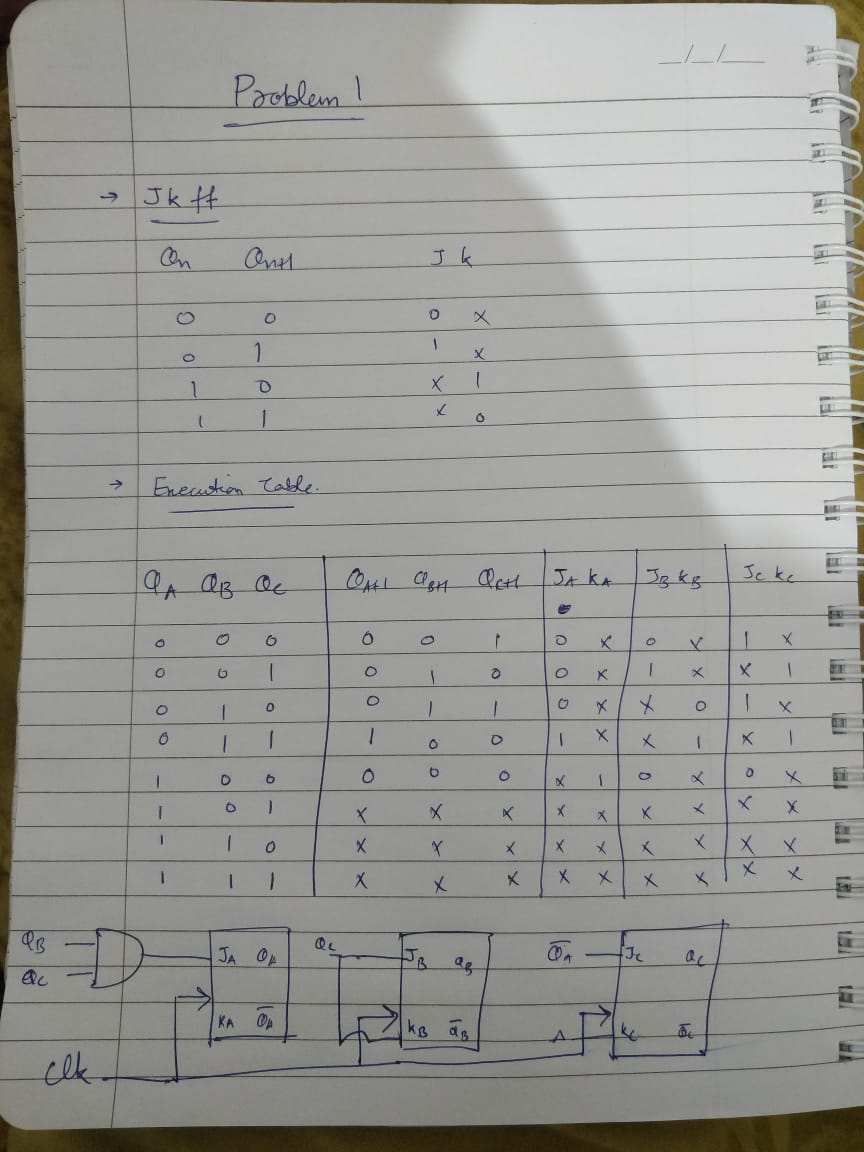 _/_/_
Problem 1
→ Jk ff
Qn Qn+1 J k
0 0 0 x
0 1 1 x
1 0 x 1
1 1 x 0
→ Execution Table.
QA QB QC QA+1 QB+1 QC+1 JA KA JB KB JC KC
0 0 0 0 0 1 0 x 0 x 1 x
0 0 1 0 1 0 0 x 1 x x 1
0 1 0 0 1 1 0 x x 0 1 x
0 1 1 1 0 0 1 x x 1 x 1
1 0 0 0 0 0 x 1 0 x 0 x
1 0 1 x x x x x x x x x
1 1 0 x x x x x x x x x
1 1 1 x x x x x x x x x
QB JA QA QC JB QB Q̅A JC QC
QC
KA Q̅A KB Q̅B KC Q̅C
Clk